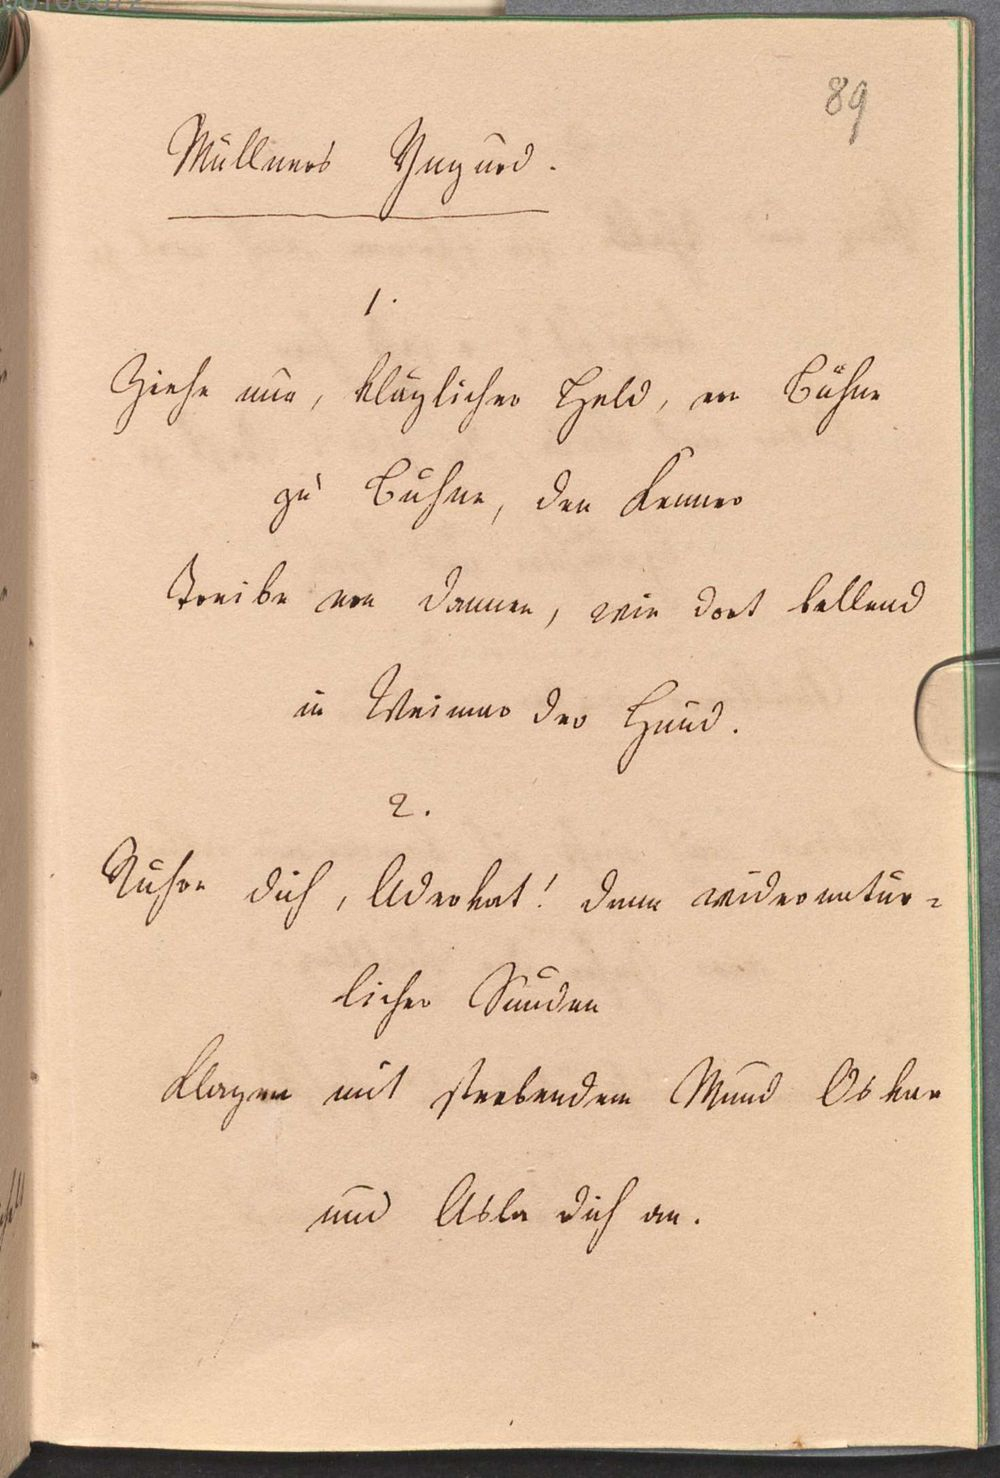 89
Müllners Yngurd.
1.
Ziehe nur, kläglicher Held, von Bühne
zu Bühne, den Kenner
Treibe von dannen, wie dort bellend
in Weimar der Hund.
2.
Rühre dich, Advokat! denn widernatür=
licher Sünden
Klagen mit sterbendem Mund Oskar
und Asla dich an.